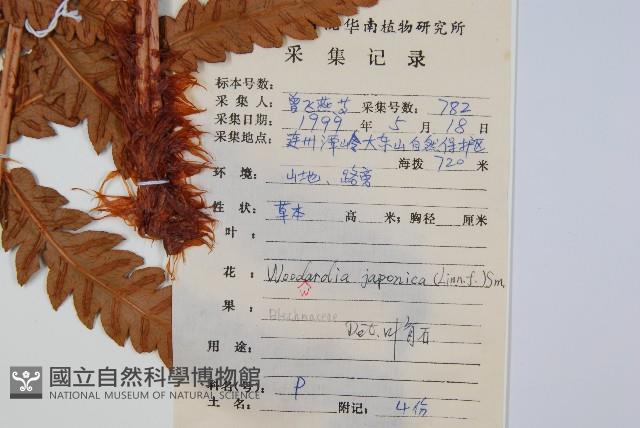 华南植物研究所
采集记录
标本号数:
采集人: 曾飞燕等 采集号数: 782
采集日期: 1999 年 5 月 18 日
采集地点: 连州潭岭大东山自然保护区
海拨 720 米
环 境: 山地、路旁
性 状: 草本 高 米; 胸径 厘米
叶:
花: Woodwardia japonica (Linn.f.) Sm.
果:
Blechnaceae
Det. 叶
用 途:
科名(号): P
土 名: 附记: 4份
國立自然科學博物館
NATIONAL MUSEUM OF NATURAL SCIENCE